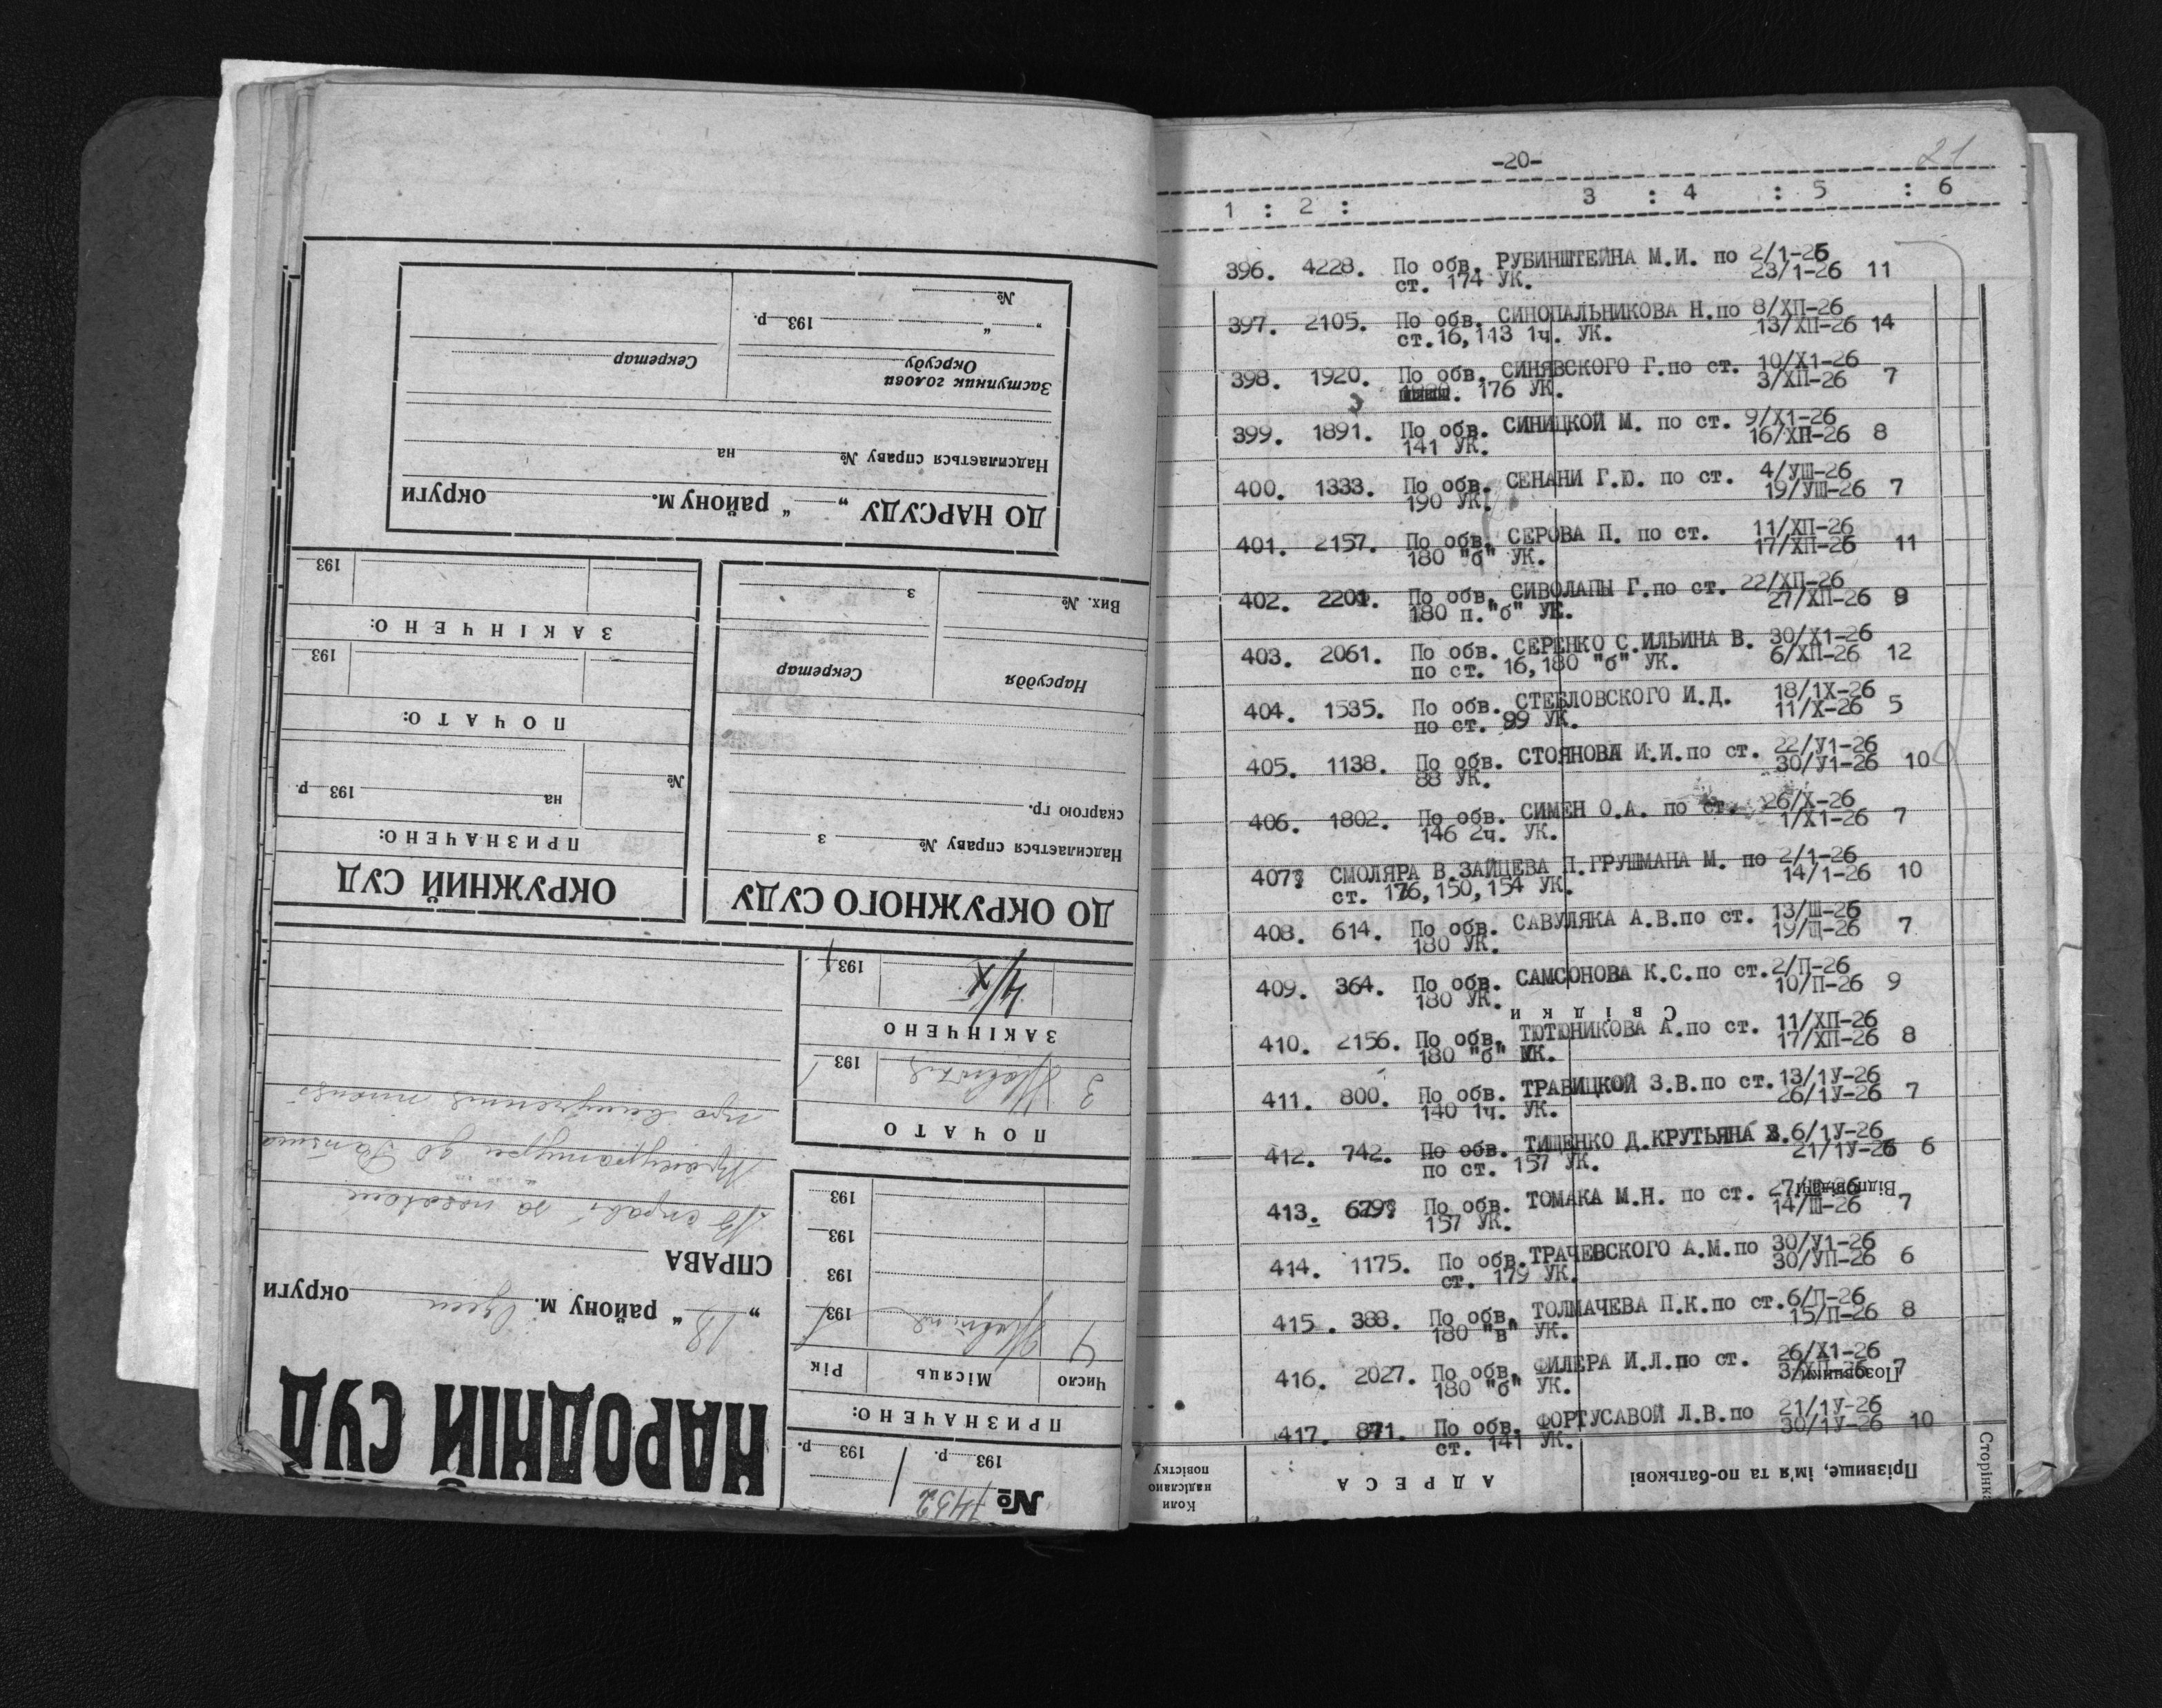 № 1432
193 р. 193 р.
НАРОДНІЙ СУД
ПРИЗНАЧЕНО:
Число Місяць Рік
4 193
193
193
193
" 18 " району м. Одеси округи
СПРАВА
ПОЧАТО
3 193
ЗАКІНЧЕНО
4/X 193
ДО ОКРУЖНОГО СУДУ
Надсилається справу № з
скаргою гр.
Нарсуддя Секретар
Вих. № з
ОКРУЖНИЙ СУД
ПРИЗНАЧЕНО:
№ на 193 р.
ПОЧАТО:
193
ЗАКІНЧЕНО:
193
ДО НАРСУДУ " " району м. округи
Надсилається справу № на
Заступник голови
Окрсуду
Секретар
" " 193 р.
№
-20- 21
1 : 2 : 3 : 4 : 5 : 6
396. 4228. По обв. РУБИНШТЕЙНА М.И. по 2/1-26
ст. 174 УК. 23/1-26 11
397. 2105. По обв. СИНОПАЛЬНИКОВА Н.по 8/ХП-26
ст.16,113 1ч. УК. 13/ХП-26 14
398. 1920. По обв. СИНЯВСКОГО Г.по ст. 10/Х1-26
176 УК. 3/ХП-26 7
399. 1891. По обв. СИНИЦКОЙ М. по ст. 9/Х1-26
141 УК. 16/ХП-26 8
400. 1333. По обв. СЕНАНИ Г.Ю. по ст. 4/УШ-26
190 УК. 19/УШ-26 7
401. 2157. По обв. СЕРОВА П. по ст. 11/ХП-26
180 "б" УК. 17/ХП-26 11
402. 2201. По обв. СИВОЛАПЫ Г.по ст. 22/ХП-26
180 п."б" УК. 27/ХП-26 9
403. 2061. По обв. СЕРЕНКО С.ИЛЬИНА В. 30/Х1-26
по ст. 16,180 "б" УК. 6/ХП-26 12
404. 1535. По обв. СТЕБЛОВСКОГО И.Д. 18/1Х-26
по ст. 99 УК. 11/Х-26 5
405. 1138. По обв. СТОЯНОВА И.И.по ст. 22/У1-26
88 УК. 30/У1-26 10
406. 1802. По обв. СИМЕН О.А. по ст. 26/Х-26
146 2ч. УК. 1/Х1-26 7
407? СМОЛЯРА В.ЗАЙЦЕВА П.ГРУШМАНА М. по 2/1-26
ст. 176,150,154 УК. 14/1-26 10
408. 614. По обв. САВУЛЯКА А.В.по ст. 13/Ш-26
180 УК. 19/Щ-26 7
409. 364. По обв. САМСОНОВА К.С.по ст.2/П-26
180 УК. 10/П-26 9
Свідки
410. 2156. По обв. ТЮТЮНИКОВА А.по ст. 11/ХП-26
180 "б" УК. 17/ХП-26 8
411. 800. По обв. ТРАВИЦКОЙ З.В.по ст.13/1У-26
140 1ч. УК. 26/1У-26 7
412. 742. По обв. ТИЩЕНКО Д.КРУТЬЯНА З.6/1У-26
по ст. 157 УК. 21/1У-26 6
Відповідачі
413. 629? По обв. ТОМАКА М.Н. по ст.
157 УК. 14/Ш-26 7
414. 1175. По обв.ТРАЧЕВСКОГО А.М.по 30/У1-26
ст. 179 УК. 30/УП-26 6
415. 388. По обв. ТОЛМАЧЕВА П.К.по ст.6/П-26
180 "в" УК. 15/П-26 8
416. 2027. По обв. ФИЛЕРА И.Л.по ст. 26/Х1-26
180 "б" УК. 3/ХП-26 7
Позовники
417. 871. По обв. ФОРТУСАВОЙ Л.В.по 21/1У-26
ст. 141 УК. 30/1У-26 10
Сторінка
Прізвище, ім'я та по-батькові
АДРЕСА
Коли надіслано повістку